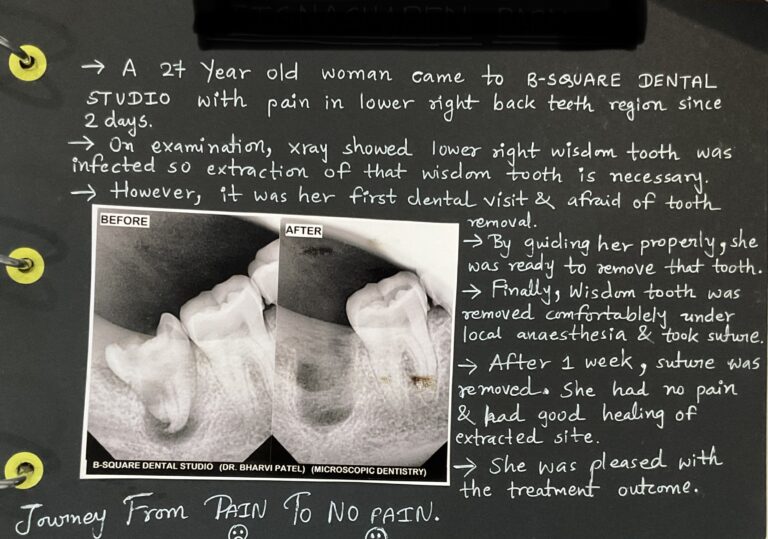 → A 27 Year old woman came to B-SQUARE DENTAL
STUDIO with pain in lower right back teeth region since
2 days.
→ On examination, xray showed lower right wisdom tooth was
infected so extraction of that wisdom tooth is necessary.
→ However, it was her first dental visit & afraid of tooth
removal.
BEFORE
AFTER
B-SQUARE DENTAL STUDIO (DR. BHARVI PATEL) (MICROSCOPIC DENTISTRY)
→ By guiding her properly, she
was ready to remove that tooth.
→ Finally, Wisdom tooth was
removed comfortablely under
local anaesthesia & took suture.
→ After 1 week, suture was
removed. She had no pain
& had good healing of
extracted site.
→ She was pleased with
the treatment outcome.
Journey From PAIN To NO PAIN.